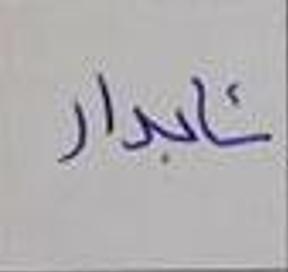 تابدار